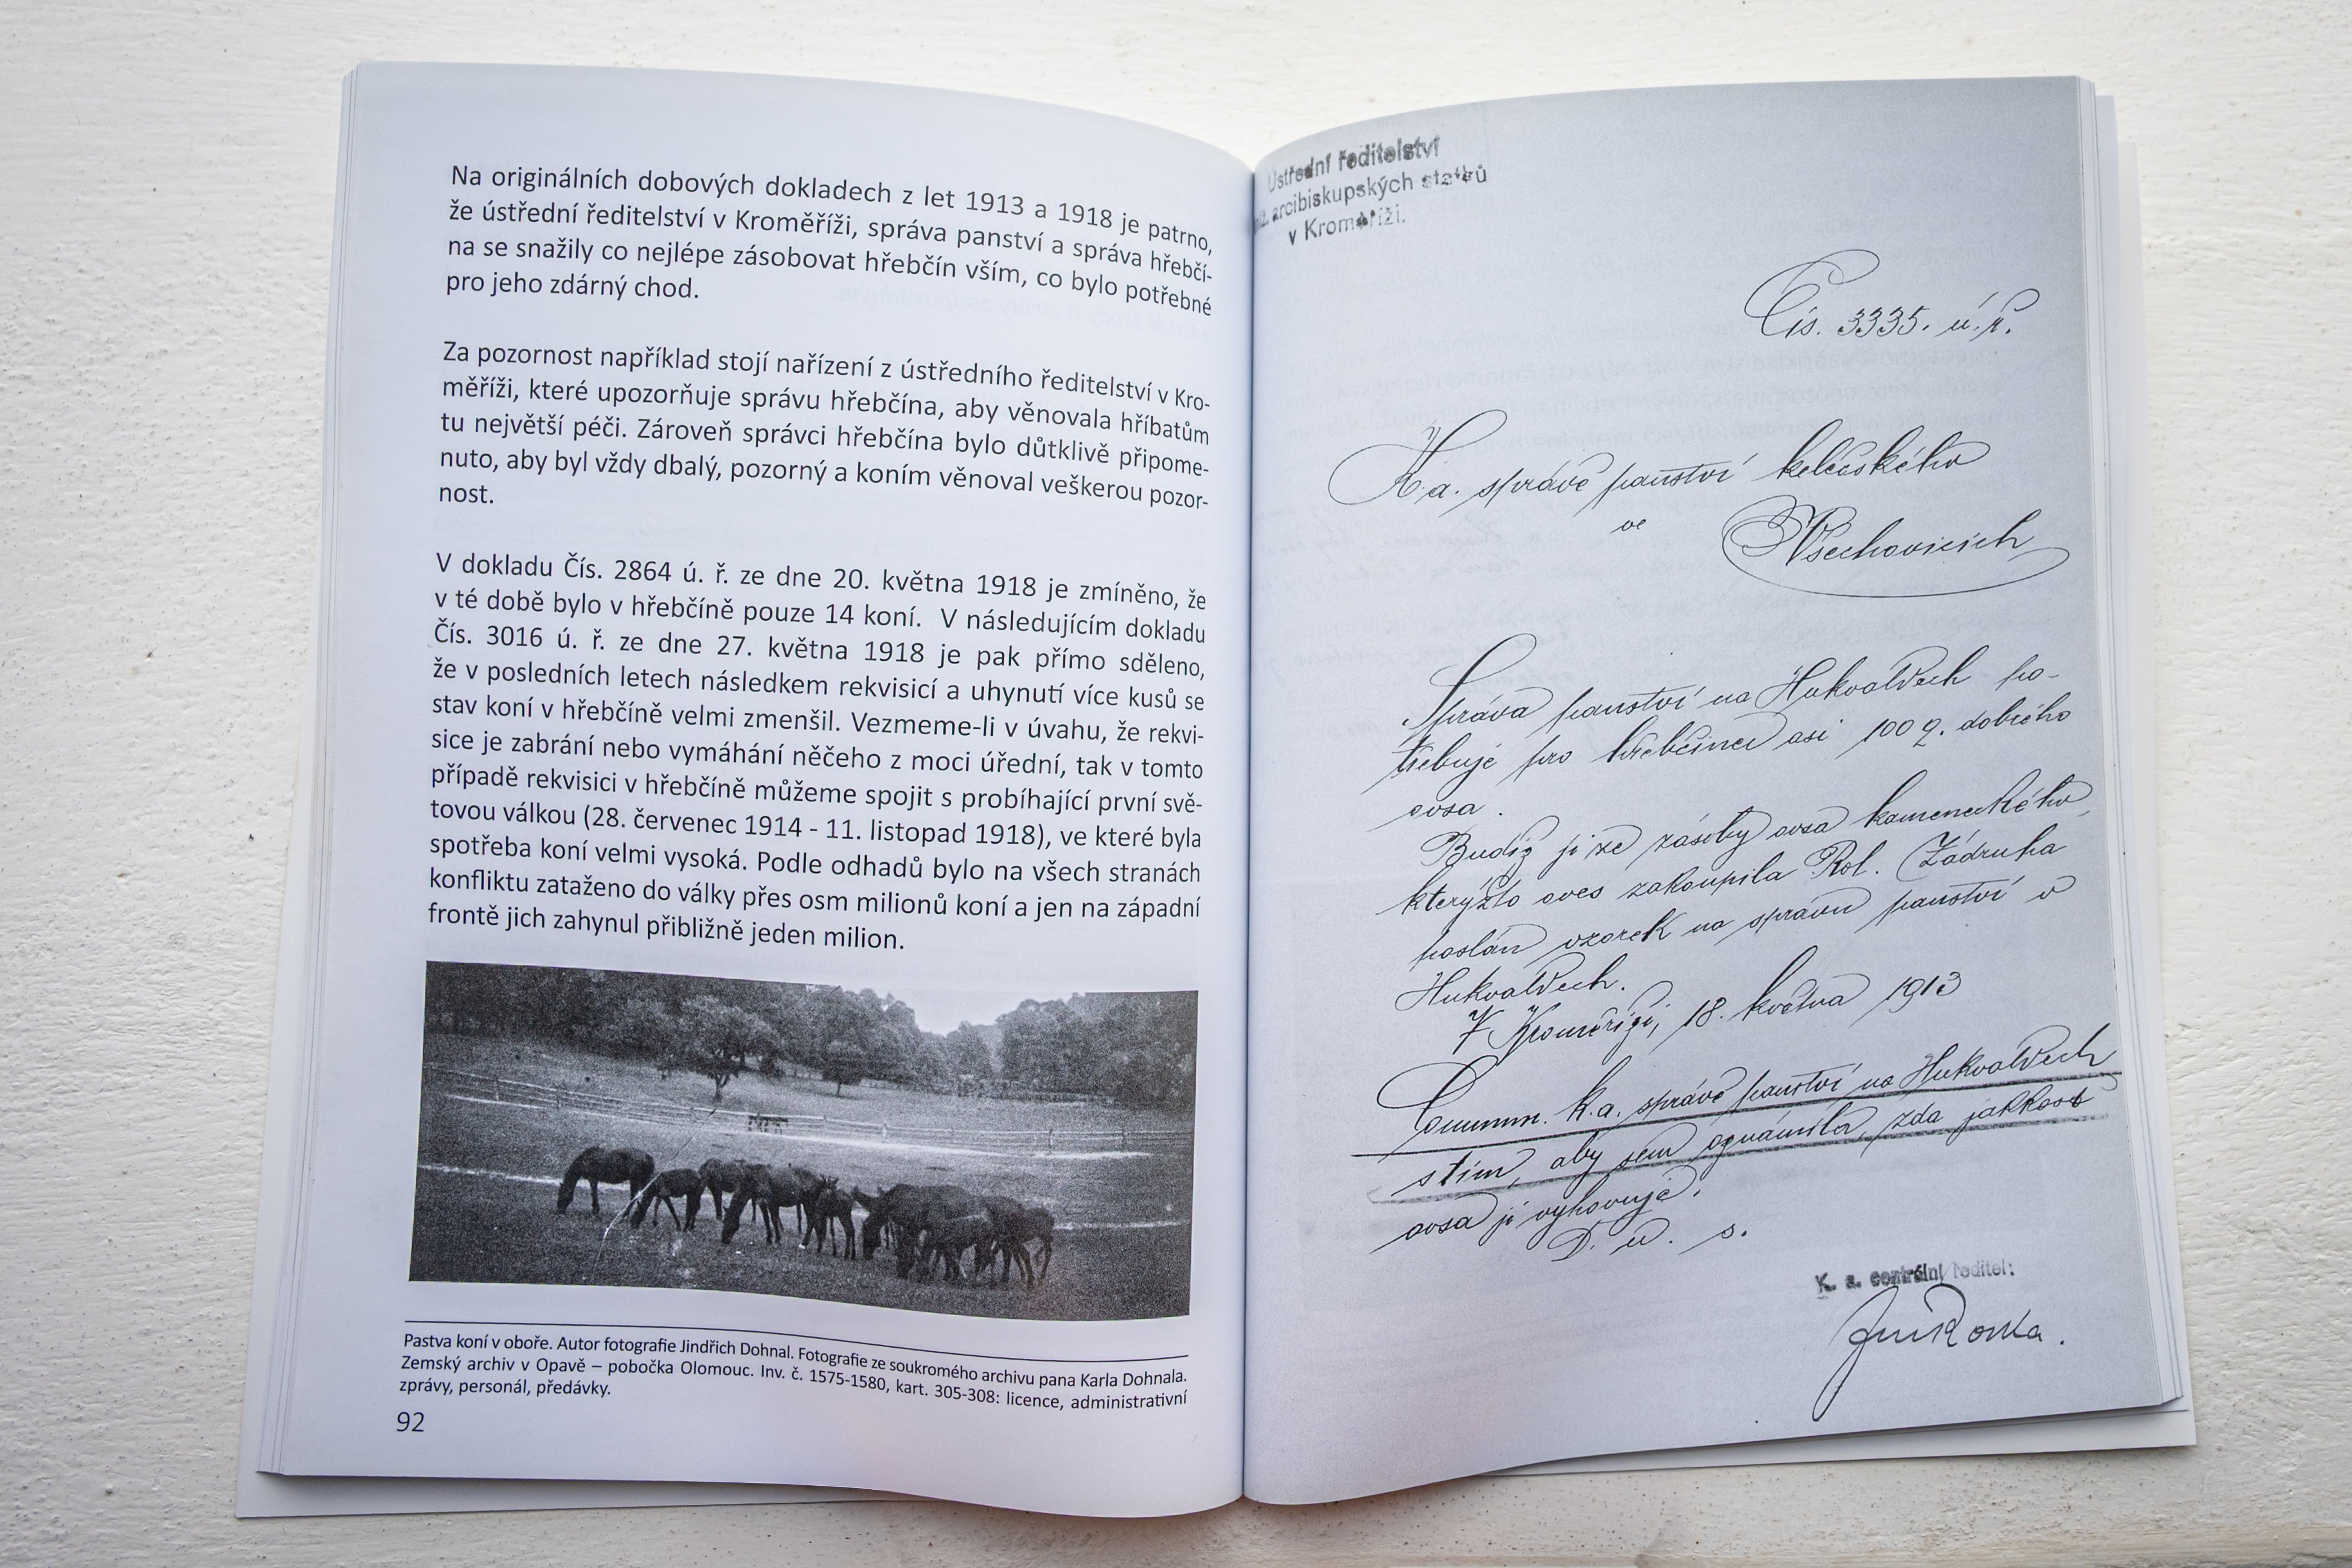 Na originálních dobových dokladech z let 1913 a 1918 je patrno,
že ústřední ředitelství v Kroměříži, správa panství a správa hřebčí-
na se snažily co nejlépe zásobovat hřebčín vším, co bylo potřebné
pro jeho zdárný chod.
Za pozornost například stojí nařízení z ústředního ředitelství v Kro-
měříži, které upozorňuje správu hřebčína, aby věnovala hříbatům
tu největší péči. Zároveň správci hřebčína bylo důtklivě připome-
nuto, aby byl vždy dbalý, pozorný a koním věnoval veškerou pozor-
nost.
V dokladu Čís. 2864 ú. ř. ze dne 20. května 1918 je zmíněno, že
v té době bylo v hřebčíně pouze 14 koní. V následujícím dokladu
Čís. 3016 ú. ř. ze dne 27. května 1918 je pak přímo sděleno,
že v posledních letech následkem rekvisicí a uhynutí více kusů se
stav koní v hřebčíně velmi zmenšil. Vezmeme-li v úvahu, že rekvi-
sice je zabrání nebo vymáhání něčeho z moci úřední, tak v tomto
případě rekvisici v hřebčíně můžeme spojit s probíhající první svě-
tovou válkou (28. červenec 1914 - 11. listopad 1918), ve které byla
spotřeba koní velmi vysoká. Podle odhadů bylo na všech stranách
konfliktu zataženo do války přes osm milionů koní a jen na západní
frontě jich zahynul přibližně jeden milion.
Pastva koní v oboře. Autor fotografie Jindřich Dohnal. Fotografie ze soukromého archivu pana Karla Dohnala.
Zemský archiv v Opavě – pobočka Olomouc. Inv. č. 1575-1580, kart. 305-308: licence, administrativní
zprávy, personál, předávky.
92
Ústřední ředitelství
arcibiskupských statků
v Kroměříži.
Čís. 3335. ú. ř.
K. a. správě panství kelečského
ve
Všechovicích
Správa panství na Hukvaldech po-
třebuje pro hřebčinec asi 100 q. dobrého
ovsa.
Budiž jí ze zásoby ovsa kameneckého,
kterýžto oves zakoupila Rol. Zádruha
poslán vzorek na správu panství v
Hukvaldech.
V Kroměříži, 18. května 1913
Commun. k. a. správě panství na Hukvaldech
s tím, aby sem oznámila, zda jakkost
ovsa jí vyhovuje.
D. u. s.
K. a. centrální ředitel: